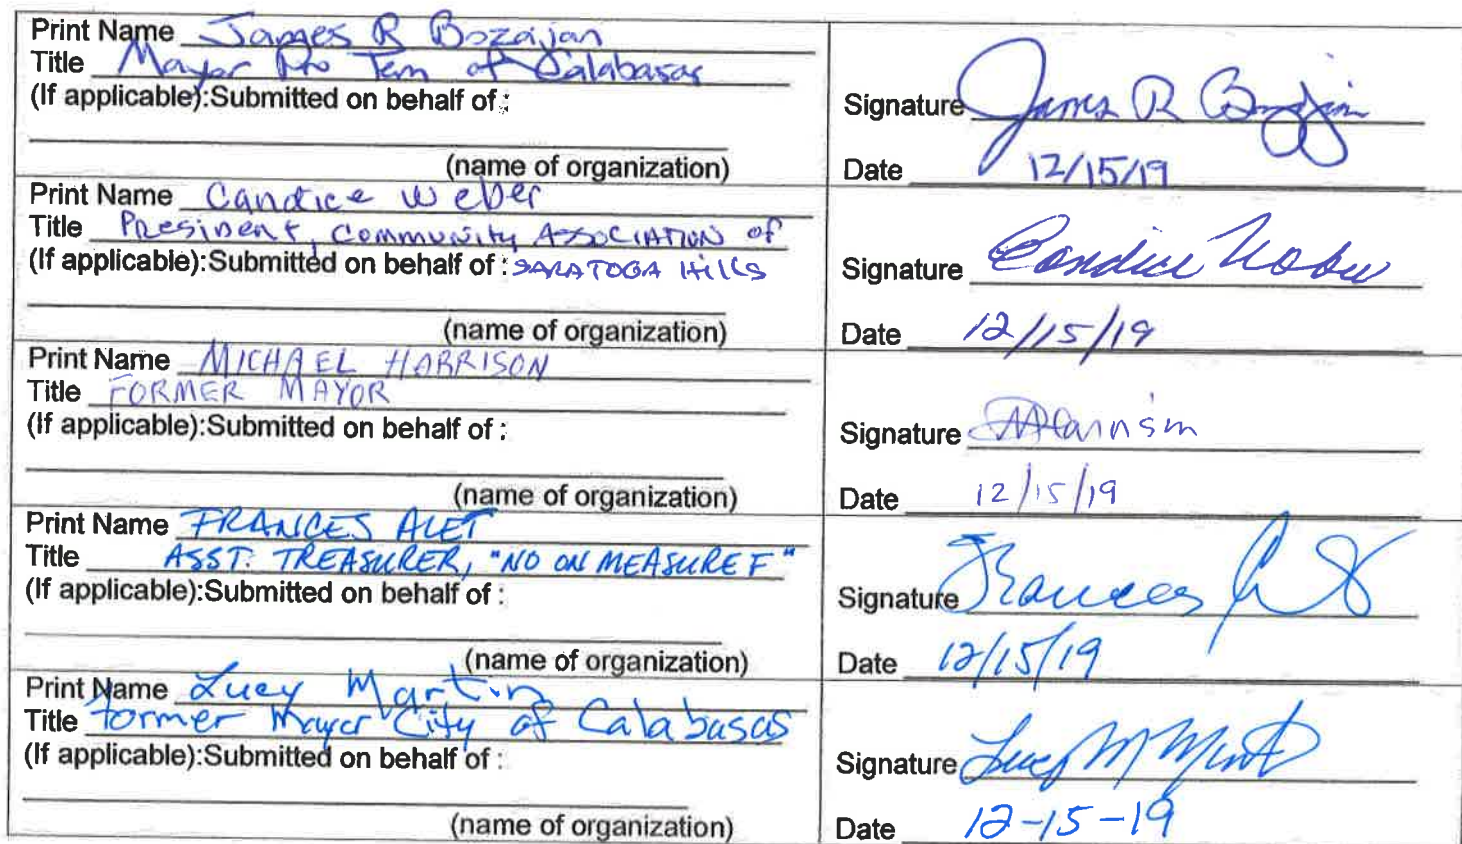 Print Name James R Bozajian
Title Mayor Pro Tem of Calabasas
(If applicable):Submitted on behalf of :
(name of organization)
Signature James R Bozajian
Date 12/15/19
Print Name Candice Weber
Title President, Community Association of
(If applicable):Submitted on behalf of : SARATOGA Hills
(name of organization)
Signature Candice Weber
Date 12/15/19
Print Name MICHAEL HARRISON
Title FORMER MAYOR
(If applicable):Submitted on behalf of :
(name of organization)
Signature MHarrison
Date 12/15/19
Print Name FRANCES ALET
Title ASST. TREASURER, "NO ON MEASURE F"
(If applicable):Submitted on behalf of :
(name of organization)
Signature Frances
Date 12/15/19
Print Name Lucy Martin
Title former Mayor City of Calabasas
(If applicable):Submitted on behalf of :
(name of organization)
Signature Lucy M Martin
Date 12-15-19